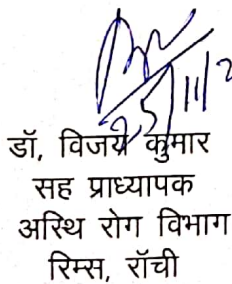 25/11/2
डॉ, विजय कुमार
सह प्राध्यापक
अस्थि रोग विभाग
रिम्स, रॉची